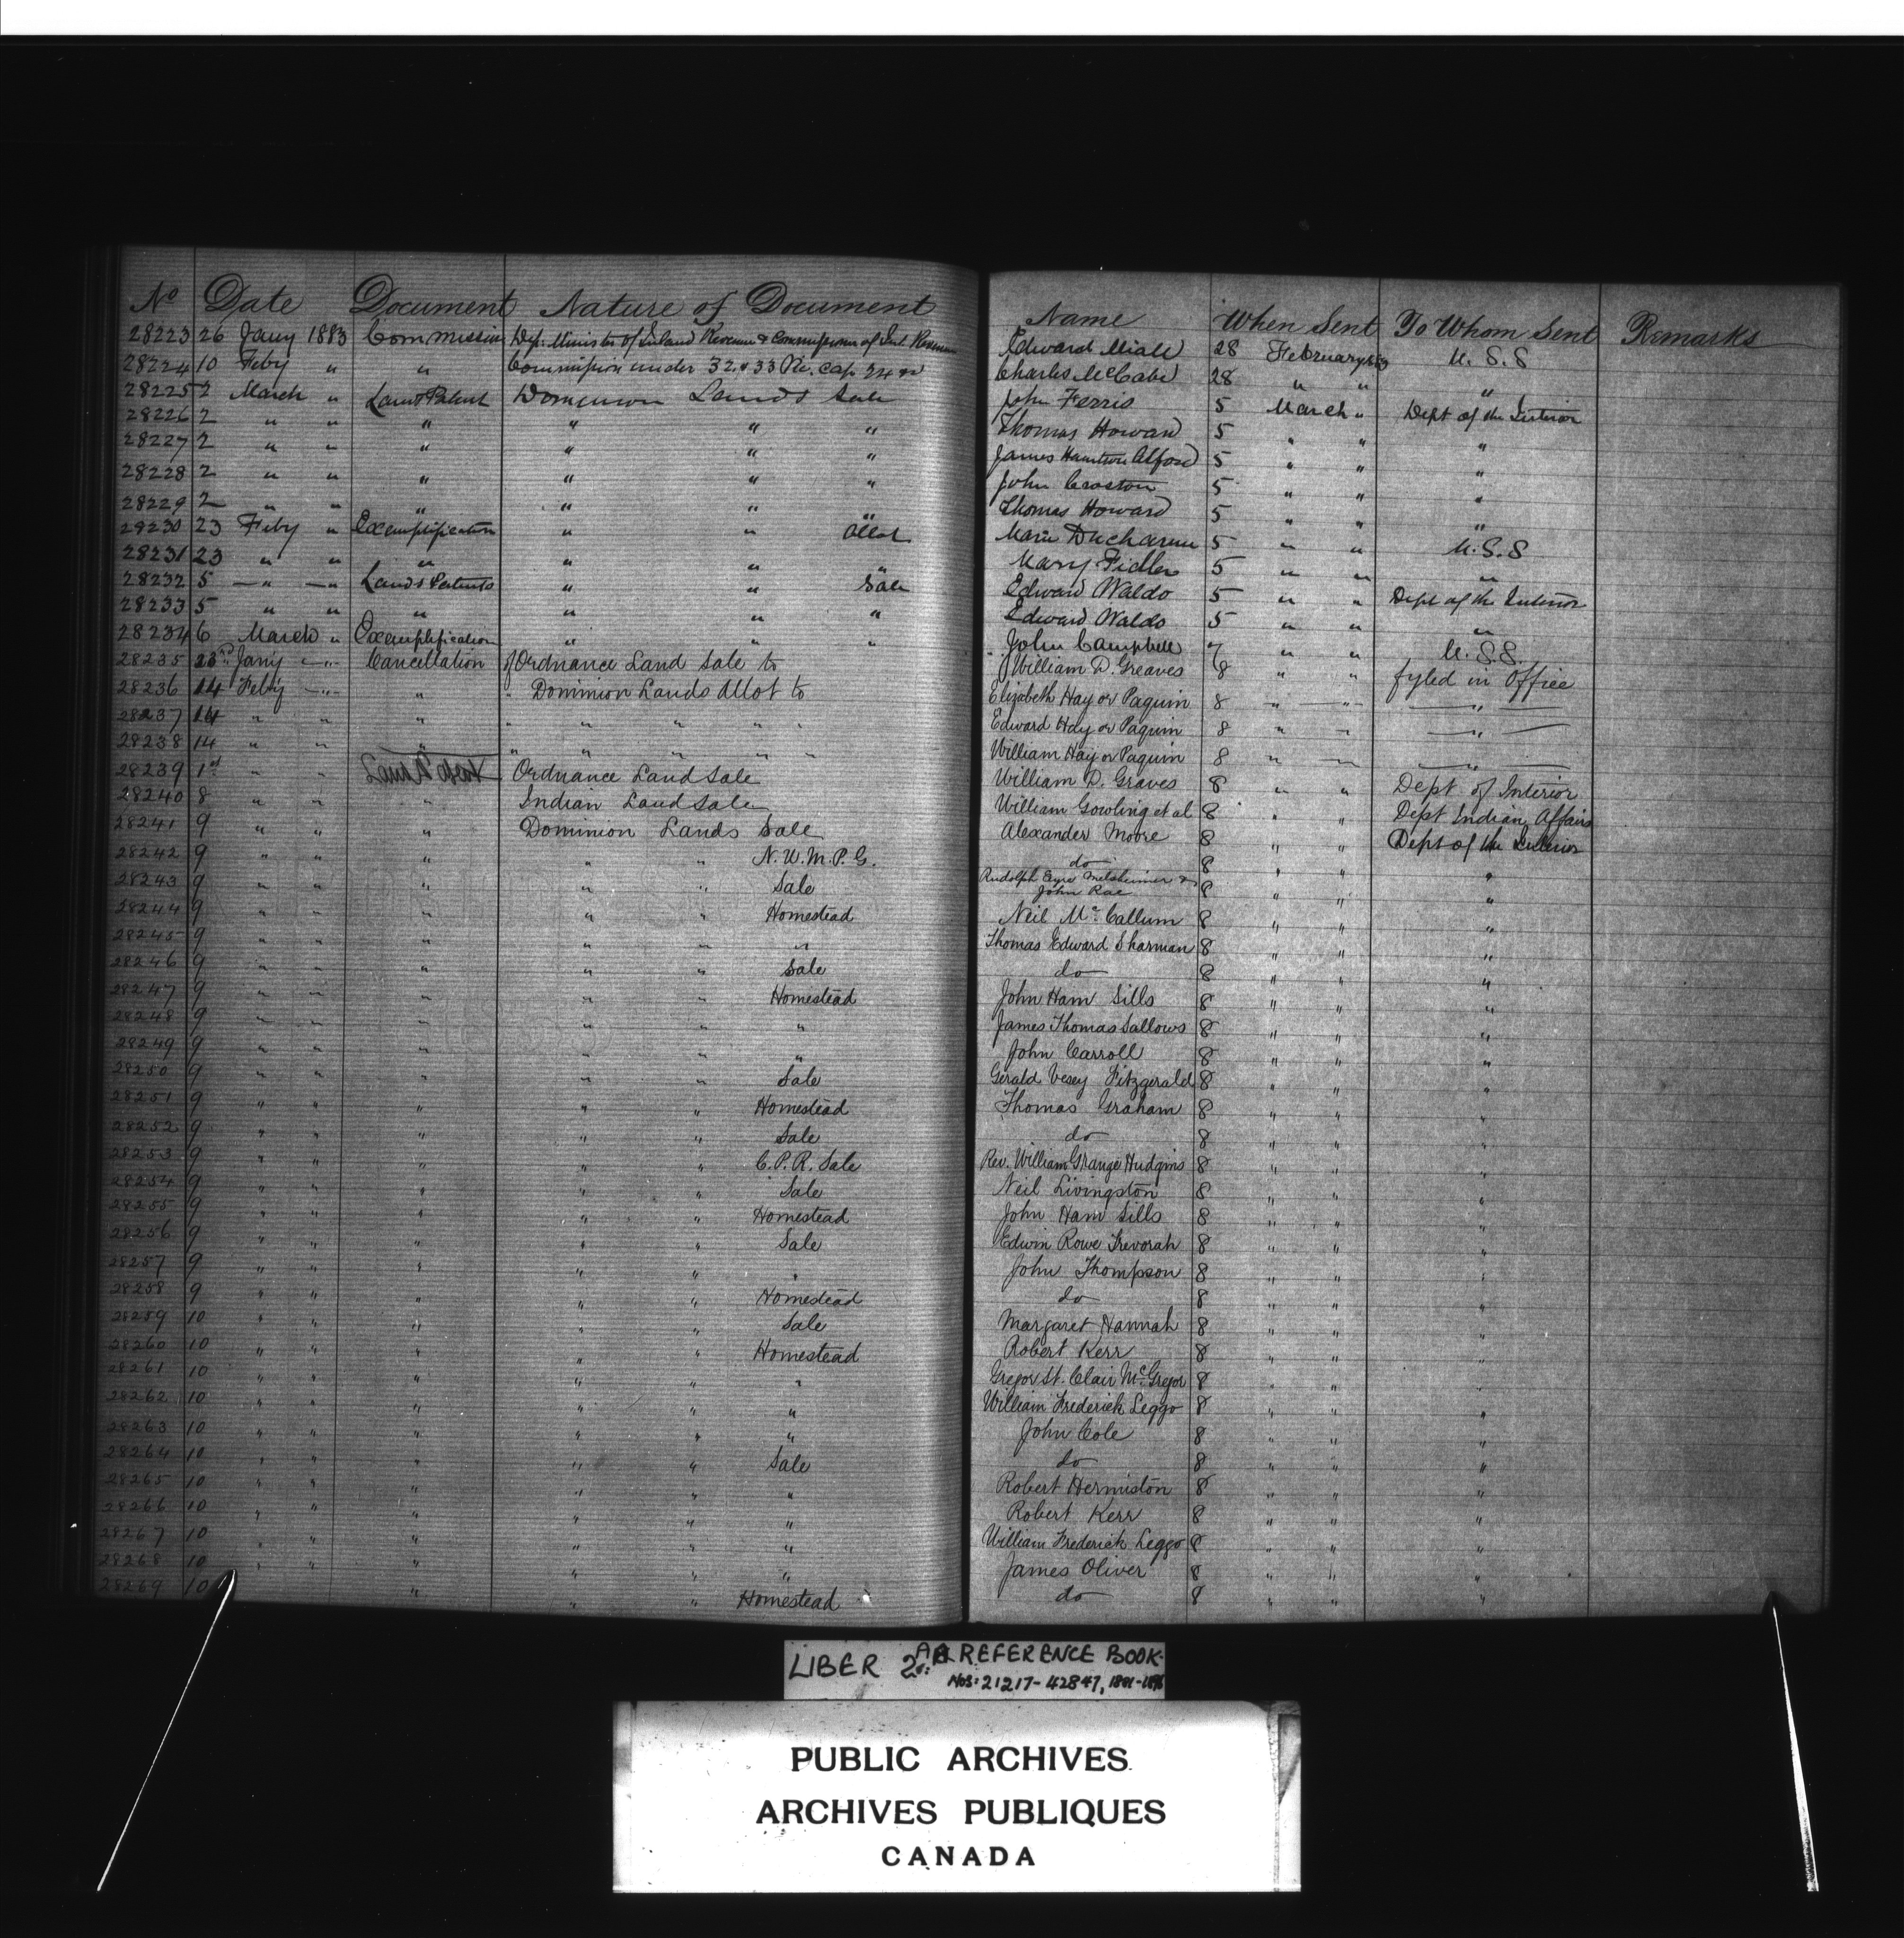 No Date Document Nature of Document Name When Sent To Whom Sent Remarks
28223 26 Jany 1883 Commission Dep. Minister of Inland Revenue & Commissioner of Inl. Revenue Edward Miall 28 February 1883 U.S.S
28224 10 Feby " " Commission under 32 & 33 Vic. cap. 24 Charles McCabe 28 " " "
28225 2 March " Land Patent Dominion Lands Sale John Ferris 5 March " Dept of the Interior
28226 2 " " " " " " Thomas Howard 5 " " "
28227 2 " " " " " " James Hamilton Alford 5 " " "
28228 2 " " " " " " John Croston 5 " " "
28229 2 " " " " " " Thomas Howard 5 " " "
28230 23 Feby " Exemplification " " Allot Marie Ducharme 5 " " U.S.S
28231 23 " " " " " " Mary Fidler 5 " " "
28232 5 " " Lands Patents " " Sale Edward Waldo 5 " " Dept of the Interior
28233 5 " " " " " " Edward Waldo 5 " " "
28234 6 March " Exemplification " " " John Campbell 7 " " U.S.S.
28235 23rd Jany " Cancellation of Ordnance Land Sale to William D. Greaves 8 " " fyled in Office
28236 14 Feby " " " Dominion Lands Allot to Elizabeth Hay or Paquin 8 " " "
28237 14 " " " " " " " " Edward Hay or Paquin 8 " " "
28238 14 " " " " " " " " William Hay or Paquin 8 " " "
28239 1st " " Land Patent Ordnance Land Sale William D. Graves 8 " " Dept of Interior
28240 8 " " " Indian Land Sale William Gowling et al 8 " " Dept Indian Affairs
28241 9 " " " Dominion Lands Sale Alexander Moore 8 " " Dept of the Interior
28242 9 " " " " " N.W.M.P.G. do 8 " " "
28243 9 " " " " " Sale Rudolph Eyre Melsheimer & John Rae 8 " " "
28244 9 " " " " " Homestead Neil McCallum 8 " " "
28245 9 " " " " " " Thomas Edward Sharman 8 " " "
28246 9 " " " " " Sale do 8 " " "
28247 9 " " " " " Homestead John Ham Sills 8 " " "
28248 9 " " " " " " James Thomas Sallows 8 " " "
28249 9 " " " " " " John Carroll 8 " " "
28250 9 " " " " " Sale Gerald Vesey Fitzgerald 8 " " "
28251 9 " " " " " Homestead Thomas Graham 8 " " "
28252 9 " " " " " Sale do 8 " " "
28253 9 " " " " " C.P.R. Sale Rev. William Grange Hudgins 8 " " "
28254 9 " " " " " Sale Neil Livingston 8 " " "
28255 9 " " " " " Homestead John Ham Sills 8 " " "
28256 9 " " " " " Sale Edwin Rowe Trevorah 8 " " "
28257 9 " " " " " " John Thompson 8 " " "
28258 9 " " " " " Homestead do 8 " " "
28259 10 " " " " " Sale Margaret Hannah 8 " " "
28260 10 " " " " " Homestead Robert Kerr 8 " " "
28261 10 " " " " " " Gregor St. Clair McGregor 8 " " "
28262 10 " " " " " " William Frederick Leggo 8 " " "
28263 10 " " " " " " John Cole 8 " " "
28264 10 " " " " " Sale do 8 " " "
28265 10 " " " " " " Robert Hermiston 8 " " "
28266 10 " " " " " " Robert Kerr 8 " " "
28267 10 " " " " " " William Frederick Leggo 8 " " "
28268 10 " " " " " " James Oliver 8 " " "
28269 10 " " " Homestead do 8 " " "
LIBER 2A: REFERENCE BOOK
NOS: 21217-42847, 1881-1896
PUBLIC ARCHIVES
ARCHIVES PUBLIQUES
CANADA